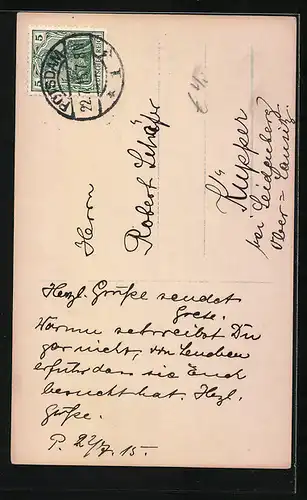 5
POTSDAM
22.
1
Herrn
Robert Schäfer
Küpper
bei Seidenberg
Ober=Lausitz
Herzl. Grüße sendet
Grete.
Warum schreibst Du
gar nicht, von Lenchen
erfuhr dass sie Euch
besucht hat. Herzl.
Grüße.
P. 22/7. 15.